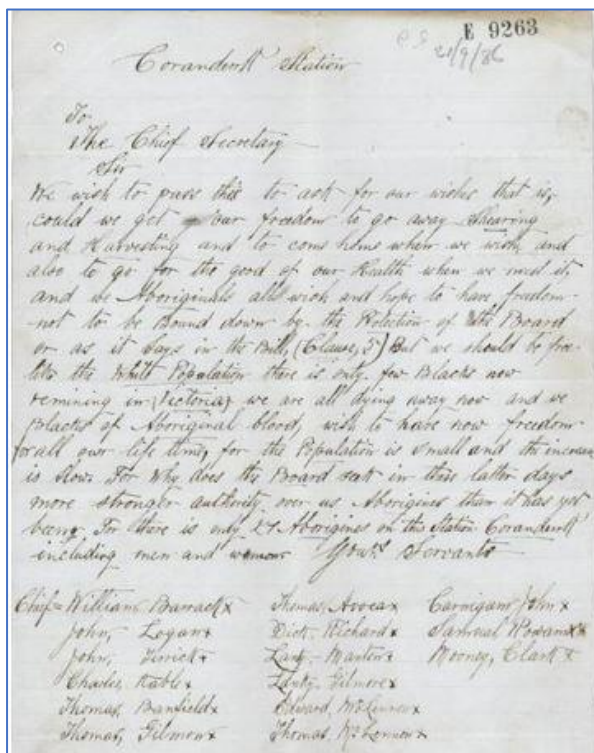 E 9263
21/9/86
Coranderrk Station
To
The Chief Secretary
Sir
We wish to pass this to ask for our wishes that is,
could we get our freedom to go away Shearing
and Harvesting and to come home when we wish and
also to go for the good of our Health when we need it,
and we Aboriginals all wish and hope to have freedom
not to be bound down by the Protection of the Board
or as it says in the Bill, (Clause, 5) But we should be free
like the White Population there is only few Blacks now
remining in (Victoria) we are all dying away now and we
Blacks of Aboriginal blood, wish to have now freedom
for all our life time, for the Population is small and the increase
is slow. For Why does the Board seek in these latter days
more stronger authority over us Aborigines than it has yet
being. For there is only 21 Aborigines on this Station Coranderrk
including men and women Servants
Chief= William, Barrack x Thomas, Avoca x Carnigam, John x
John, Logan x Dick. Richard x
John, Terrick x Lanky. Manton x Mooney, Clark x
Charles, Lanky, Gilmore x
Thomas, Banfield x Edward, McLennon x
Thomas, Gilmore x Thomas, McLennon x